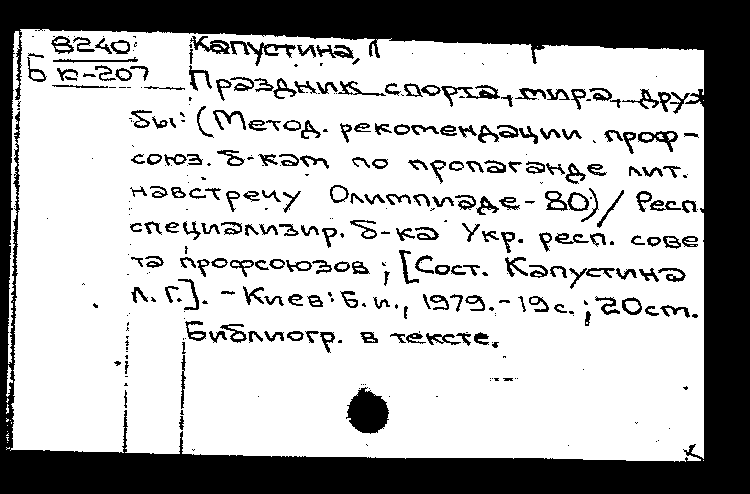 8240
Б к-207
Капустина, Л
Праздник спорта, мира, друж
бы: (Метод. рекомендации проф-
союз. б-кам по пропаганде лит.
навстречу Олимпиаде-80) / Респ.
специализир. б-ка Укр. респ. сове
та профсоюзов ; [Сост. Капустина
Л. Г.]. - Киев: Б. и., 1979. - 19 с. ; 20 см.
Библиогр. в тексте.